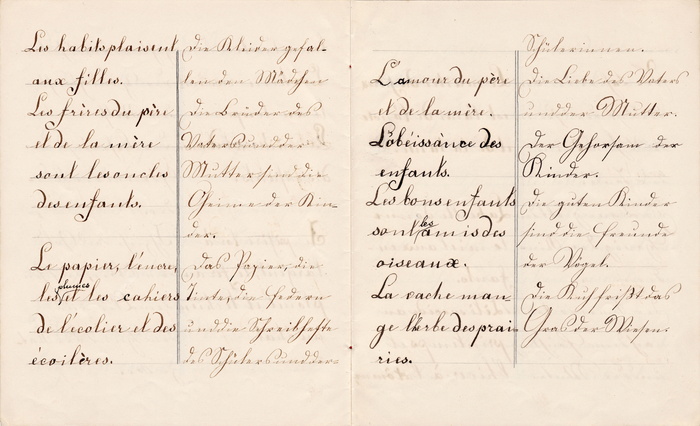 Les habits plaisent
aux filles.
Les frères du père
et de la mère
sont les oncles
des enfants.
Le papier, l'encre,
les plumes et les cahiers
de l'écolier et des
écolières.
Die Kleider gefal-
len den Mädchen
Die Brüder des
Vaters und der
Mutter sind die
Oheime der Kin-
der.
Das Papier, die
Tinte, die Federn
und die Schreibhefte
des Schülers und der-
L'amour du père
et de la mère.
L'obéissance des
enfants.
Les bons enfants
sont les amis des
oiseaux.
La vache man-
ge l'herbe des prai-
ries.
Schülerinnen.
Die Liebe des Vaters
und der Mutter.
Der Gehorsam der
Kinder.
Die guten Kinder
sind die Freunde
der Vögel.
Die Kuh frißt das
Gras der Wiesen.